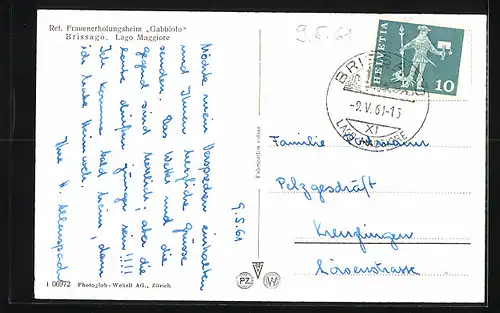 Ref. Frauenerholungsheim „Gabbiolo"
Brissago. Lago Maggiore
9.5.61
HELVETIA
10
BRISSAGO
-9.V.61-15
XI
LAGO MAGGIORE
Möchte mein Versprechen einhalten
und Ihnen herzliche Grüsse
senden. Das Wetter und die
gegend sind herrlich, aber die
leute dürften jünger sein!!!!
Ich komme bald heim, denn
ich habe Heimweh.
Ihre H.
9.5.61
Fabrication suisse
Familie
Pelzgeschäft
Kreuzlingen
Lörsenstrasse
PZ
W
1 06972 Photoglob-Wehrli AG., Zürich